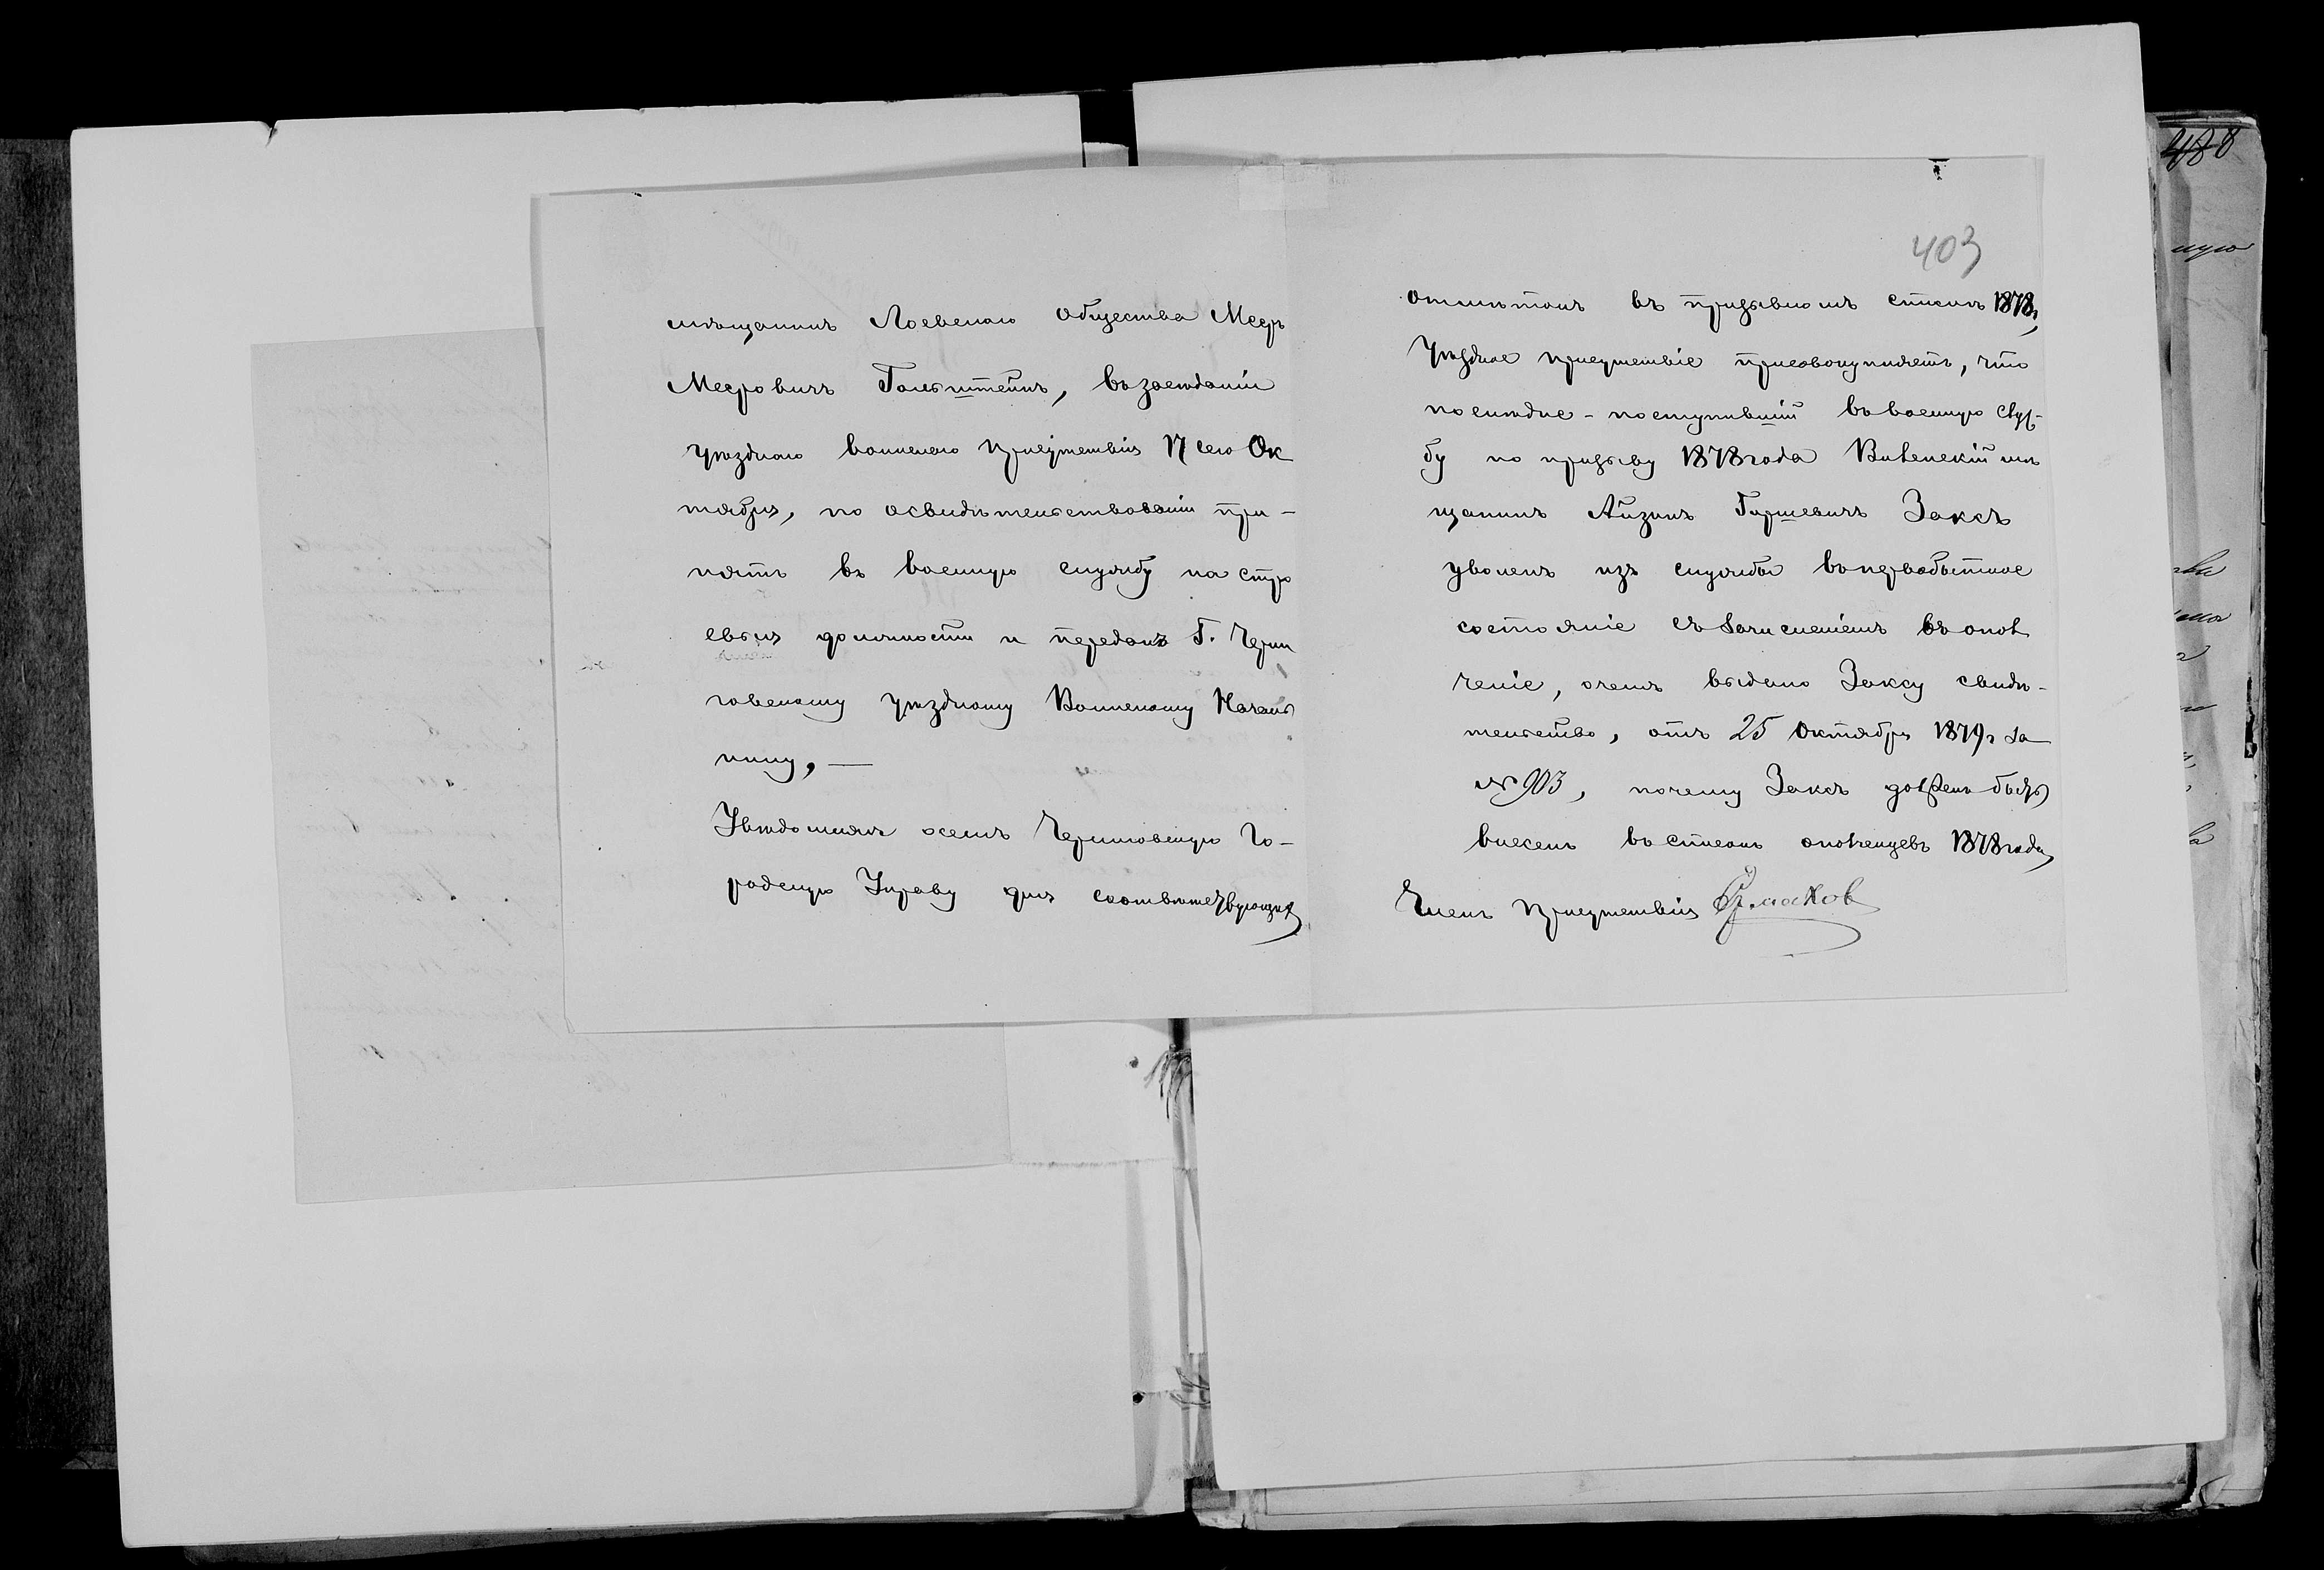 мѣщанинъ Лоевскаго общества Мееръ
Мееровичъ Гольдштейнъ, въ засѣданіи
уѣзднаго воинскаго присутствія 17 сего Ок
тября, по освидѣтельствованіи при-
нятъ въ военную службу на стро
евыя должности и переданъ Г. Черни
говскому уѣздному Воинскому Началь
нику, —
Увѣдомляя о семъ Черниговскую Го-
родскую Управу для соотвѣтствующихъ
403
отмѣтокъ въ призывномъ спискѣ 1878 г,
Уѣздное присутствіе присовокупляетъ, что
послѣдне-поступившій въ военную служ-
бу по призыву 1878 года Витебскій мѣ
щанинъ Айзикъ Гиршевичъ Заксъ
уволенъ изъ службы въ первобытное
состояніе съ зачисленіемъ въ опол
ченіе, о чемъ выдано Заксу свидѣ-
тельство, отъ 25 Октября 1879 г за
№ 903, почему Заксъ долженъ быть
внесенъ въ списокъ ополченцевъ 1878 года,
Членъ присутствія Ермаков
488
ную